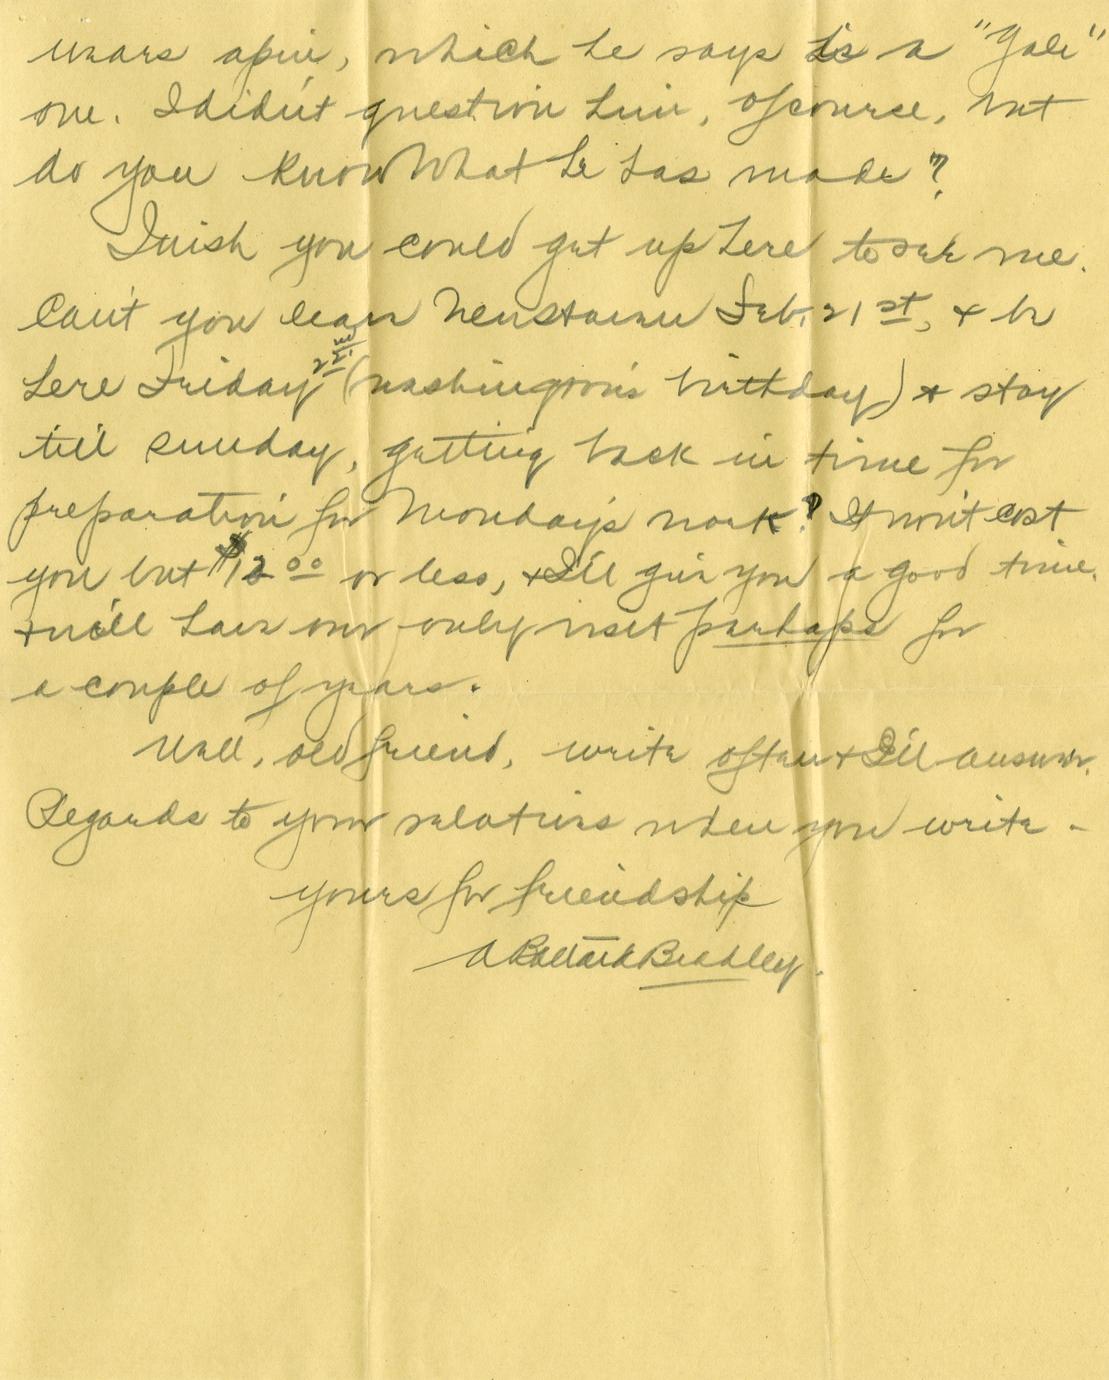 wears a pin, which he says is a "Yale"
one. I didn't question him, of course, but
do you know what he has made?
I wish you could get up here to see me.
Can't you leave Feb. 21st, & be
here Friday 22nd (Washington's birthday) & stay
till Sunday, getting back in time for
preparation for Monday's work? It won't cost
you but $12 00 or less, & I'll give you a good time.
& we'll have our only visit perhaps for
a couple of years.
Well, old friend, write often & I'll answer.
Regards to your relatives when you write -
yours for friendship
A Bradley.